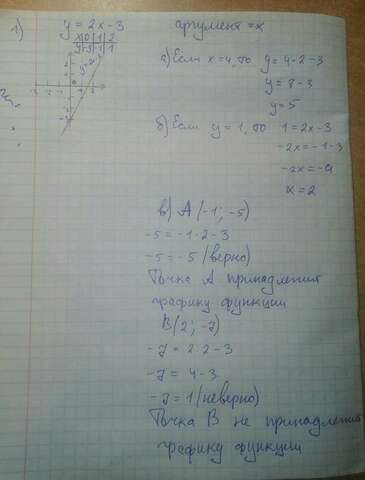 1) y = 2x - 3
x | 0 | 1 | 2
y | -3 | -1 | 1
аргумент = x
а) Если x = 4, то y = 4·2-3
y = 8-3
y = 5
б) Если y = 1, то 1 = 2x-3
-2x = -1-3
-2x = -4
x = 2
в) A (-1; -5)
-5 = -1·2-3
-5 = -5 (верно)
Точка A принадлежит
графику функции
B (2; -7)
-7 = 2·2-3
-7 = 4-3
-7 = 1 (неверно)
Точка B не принадлежит
графику функции